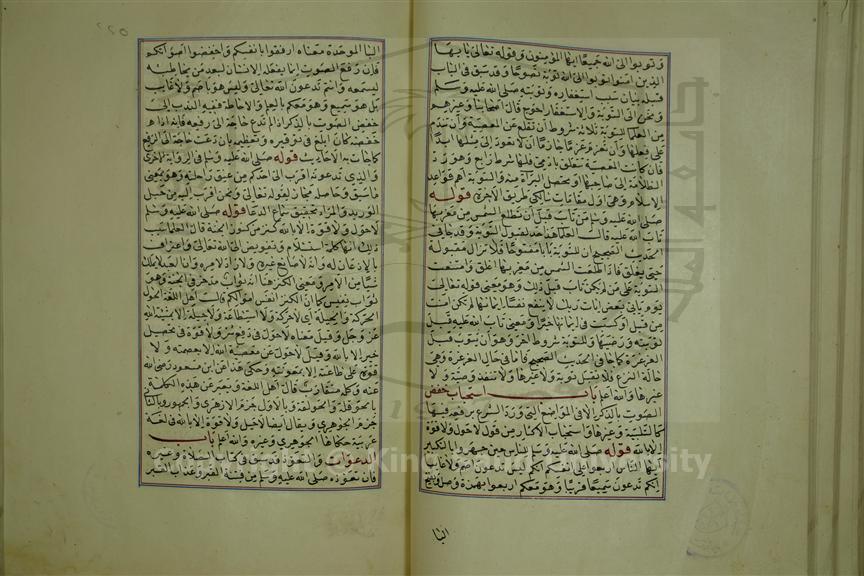 وتوبوا الى الله جميعا ايها المؤمنون وقوله تعالى يا ايها
الذين امنوا توبوا الى الله توبة نصوحا وقد سبق في الباب
قبله بيان سبب استغفاره وتوبته صلى الله عليه وسلم
ونحن الى التوبة والاستغفار احوج قال اصحابنا وغيرهم
من العلما للتوبة ثلاثة شروط ان تقلع عن المعصية وان تندم
على فعلها وان تعزم عزما جازما ان لا تعود الى مثلها ابدا
فان كانت المعصية تتعلق بادمي فلها شرط رابع وهو رد
الظلامة الى صاحبها او تحصل البراة منه والتوبة اهم قواعد
الاسلام وهي اول مقامات سالكي طريق الاخرة قوله
صلى الله عليه وسلم من تاب قبل ان تطلع الشمس من مغربها
تاب الله عليه قالت العلما هذا حد لقبول التوبة وقد جا في
الحديث الصحيح ان للتوبة بابا مفتوحا فلا تزال مقبولة
حتى يغلق فاذا طلعت الشمس من مغربها اغلق وامتنعت
التوبة على من لم يكن تاب قبل ذلك وهو معنى قوله تعالى
يوم ياتي بعض ايات ربك لا ينفع نفسا ايمانها لم تكن امنت
من قبل او كسبت في ايمانها خيرا ومعنى تاب الله عليه قبل
توبته ورضي بها وللتوبة شرط اخر وهو ان يتوب قبل
الغرغرة كما جا في الحديث الصحيح فاما في حال الغرغرة وهي
حالة النزع فلا تقبل توبة ولا غيرها ولا تنفذ وصية ولا
غيرها والله اعلم باب استحباب خفض
الصوت بالذكر الا في المواضع التي ورد الشرع برفعه فيها
كالتلبية وغيرها واستحباب الاكثار من قول لا حول ولا قوة
الا بالله قوله صلى الله عليه وسلم للناس حين جهروا بالتكبير
ايها الناس اربعوا على انفسكم انكم ليس تدعون اصم ولا غايبا
انكم تدعون سميعا قريبا وهو معكم اربعوا بهمزة وصل وفتح
البا
٢٢٥
البا الموحدة معناه ارفقوا بانفسكم واخفضوا اصواتكم
فان رفع الصوت انما يفعله الانسان لبعد من يخاطبه
ليسمعه وانتم تدعون الله تعالى وليس هو باصم ولا غايب
بل هو سميع وهو معكم بالعلم والاحاطة ففيه الندب الى
خفض الصوت بالذكر اذا لم تدع حاجة الى رفعه فانه اذا
خفضه كان ابلغ في توقيره وتعظيمه فان دعت حاجة الى الرفع
كما جات به الاحاديث قوله صلى الله عليه وسلم في الرواية الاخرى
والذي تدعونه اقرب الى احدكم من عنق راحلته وهو بمعنى
ما سبق وحاصله مجاز لقوله تعالى ونحن اقرب اليه من حبل
الوريد والمراد تحقيق سماع الدعا قوله صلى الله عليه وسلم
لا حول ولا قوة الا بالله كنز من كنوز الجنة قال العلما سبب
ذلك انها كلمة استسلام وتفويض الى الله تعالى واعتراف
بالاذعان له وانه لا صانع غيره ولا راد لامره وان العبد لا يملك
شيا من الامر ومعنى الكنز هنا انه ثواب مدخر في الجنة وهو
ثواب نفيس كما ان الكنز انفس اموالكم قالت اهل اللغة الحول
الحركة والحيلة اي لا حركة ولا استطاعة ولا حيلة الا بمشية الله
عز وجل وقيل معناه لا حول في دفع شر ولا قوة في تحصيل
خير الا بالله وقيل لا حول عن معصية الله الا بعصمته ولا
قوة على طاعته الا بمعونته وحكي هذا عن ابن مسعود رضي الله
عنه وكله متقارب قال اهل اللغة ويعبر عن هذه الكلمة
بالحوقلة والحولقة وبالاول جزم الازهري والجمهور وبالثاني
جزم الجوهري ويقال ايضا لا حيل ولا قوة الا بالله في لغة
غريبة حكاها الجوهري وغيره والله اعلم باب
الدعوات والتعوذ قد سبق في كتاب الصلاة وغيره
فان تعوذه صلى الله عليه وسلم من فتنة القبر وعذاب القبر